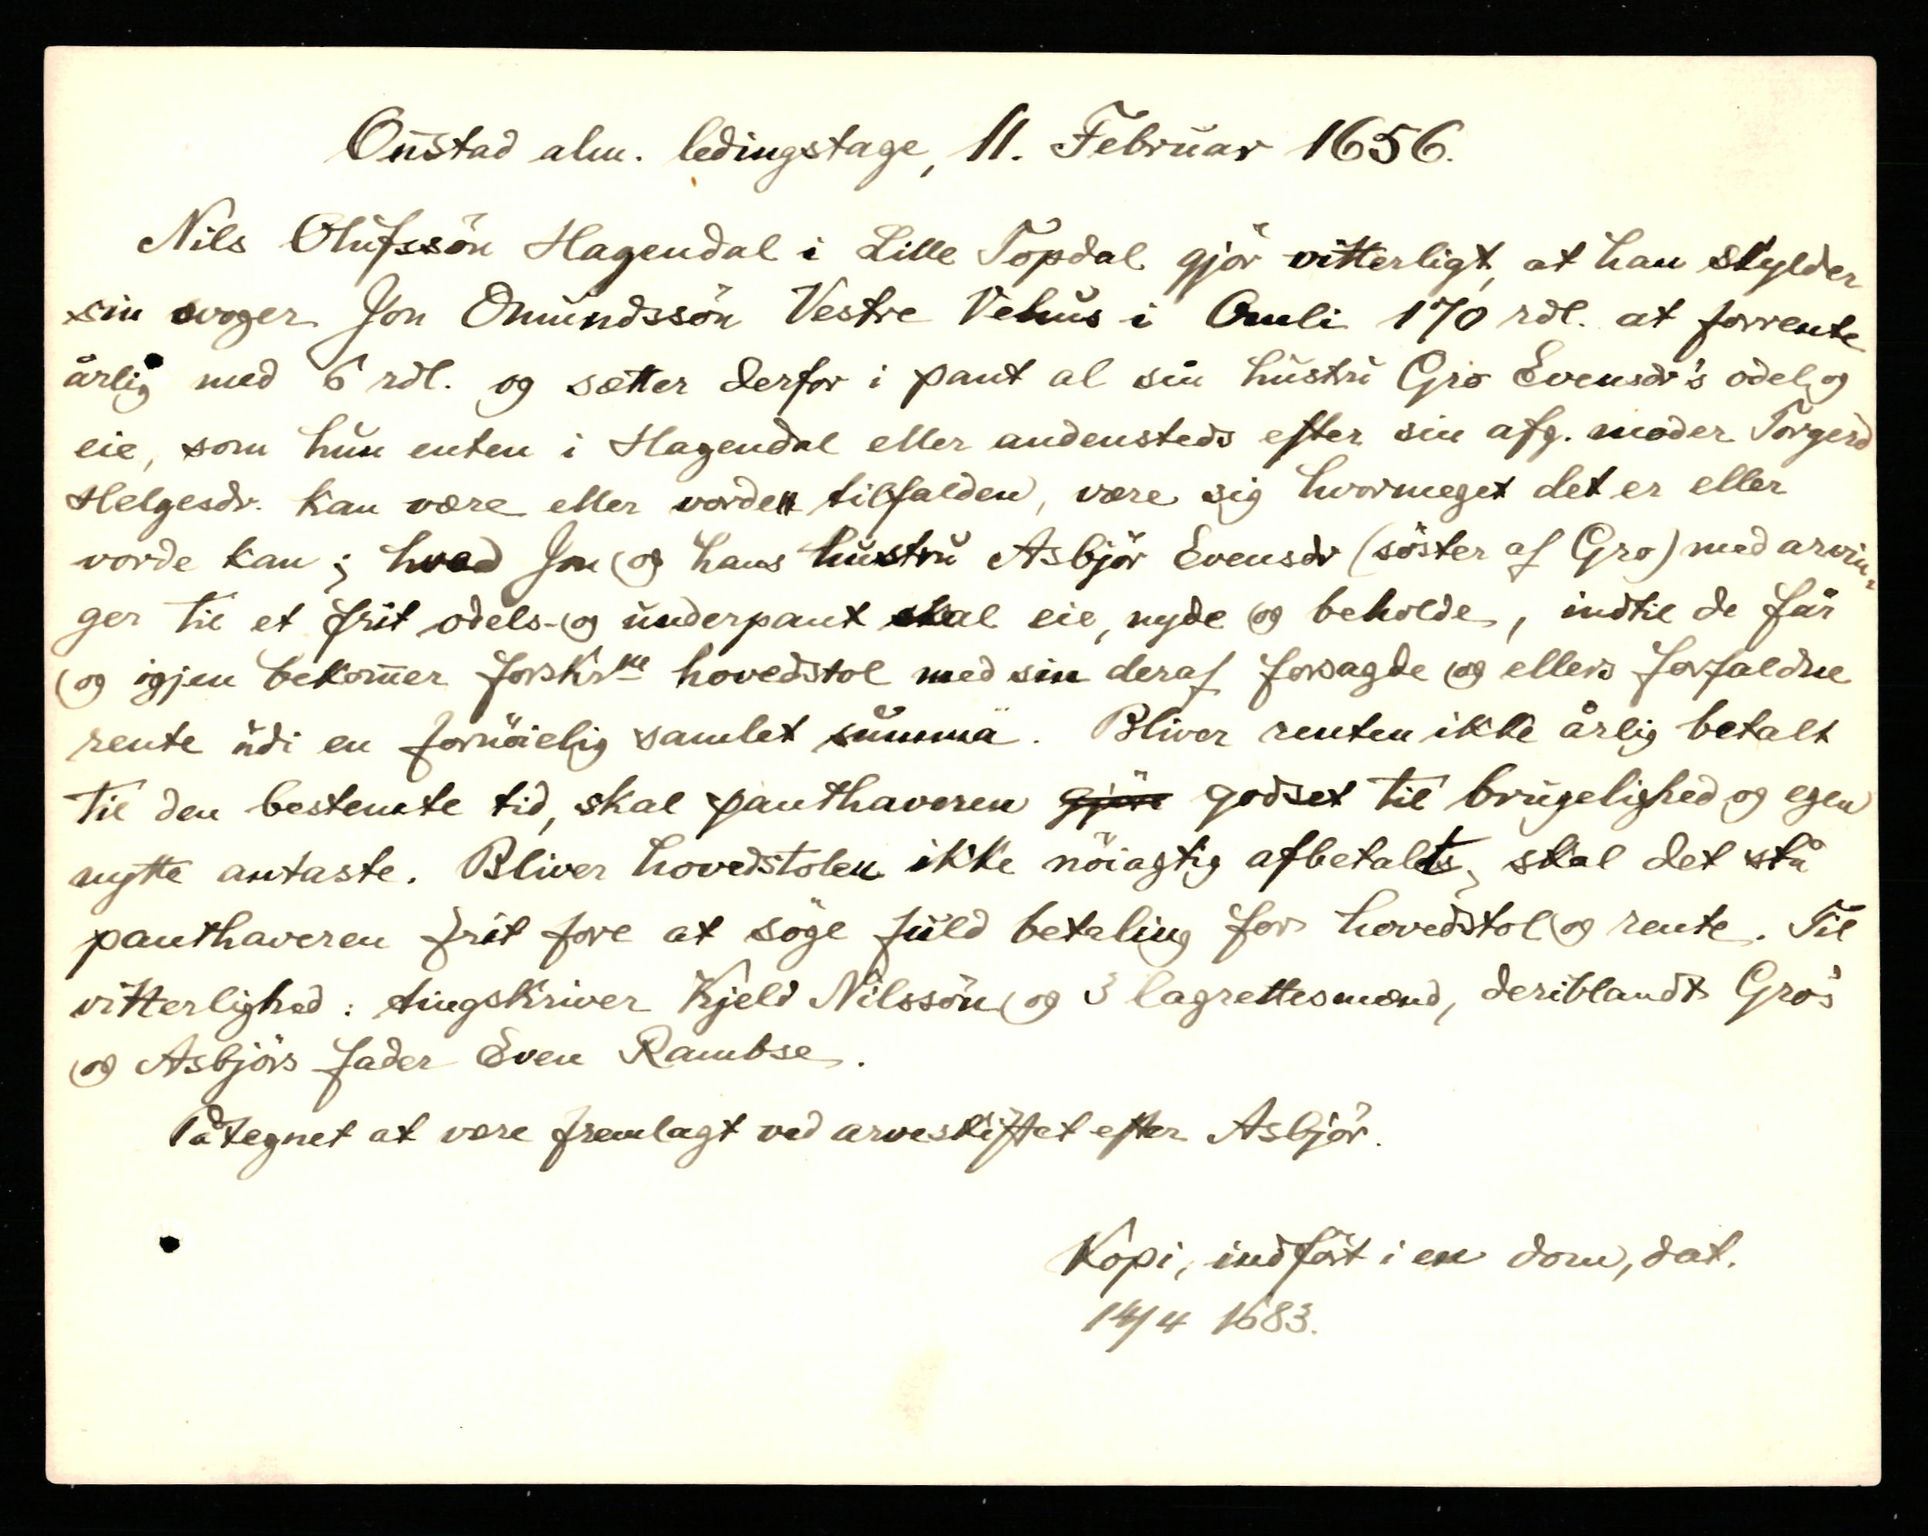 Onstad alm. ledingstage, 11. Februar 1656.
Nils Olufssön Hagendal i Lille Topdal gjör vitterligt, at han skylder
sin svoger Jon Omundssön Vestre Vehus i Omli 170 rdl. at forrente
årlig med 6 rdl. og sætter derfor i pant al sin hustru Gro Evensdr's odel og
eie, som hun enten i Hagendal eller andensteds efter sin afg. moder Torgerd
Helgesdr. kan være eller vorden tilfalden, være sig hvormeget det er eller
vorde kan; hvad Jon og hans hustru Asbjör Evensdr (söster af Gro) med arvin-
ger til et frit odels- og underpant skal eie, nyde og beholde, indtil de får
og igjen bekom̅er forskrne hovedstol med sin deraf forsagde og ellers forfaldne
rente udi en fornöielig samlet summa. Bliver renten ikke årlig betalt
til den bestemte tid, skal panthaveren gjöre godset til brugelighed og egen
nytte antaste. Bliver hovedstolen ikke nöiagtig afbetalt, skal det stå
panthaveren frit fore at söge fuld betaling for hovedstol og rente. Til
vitterlighed: tingskriver Kjeld Nilssön og 3 lagrettesmænd, deriblandt Gro's
og Asbjörs fader Even Rambse.
Påtegnet at være fremlagt ved arveskiftet efter Asbjör.
Kopi, indfört i en dom, dat.
14/4 1683.